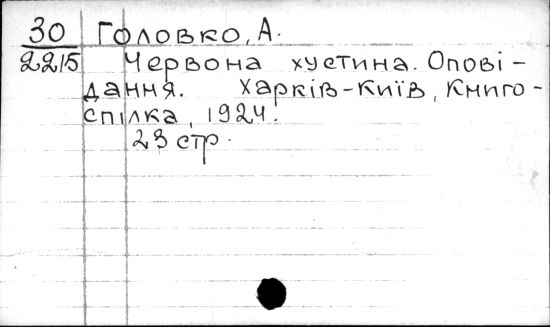 30 Головко, А.
2215 Червона хустина. Опові-
дання. Харків-Київ, Книго-
спілка, 1924.
23 стр.